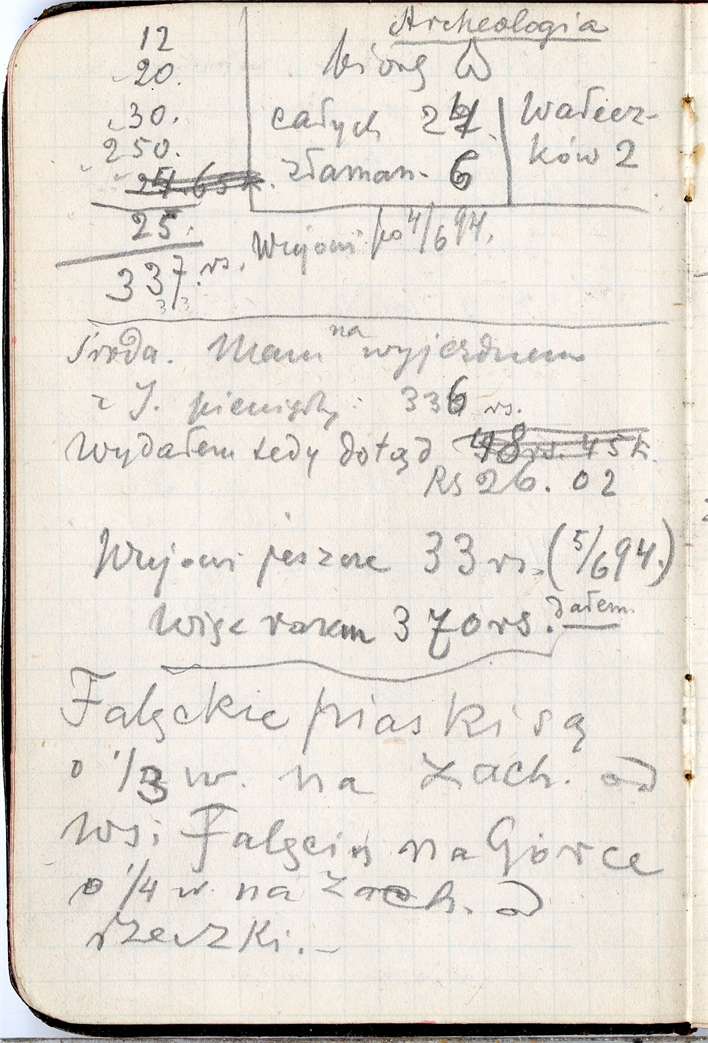 12
20.
30.
250.
25.
337 rs.
Archeologia
biorę
całych 24
złaman. 6
Wałecz-
ków 2
Wujowi po 4/6 94.
Środa. Mam na wyjezdnem
z J. pieniędzy: 336 rs.
Wydałem tedy dotąd 48 rs. 45 k.
Rs 26. 02
Wujowi jeszcze 33 rs. (5/6 94.)
Więc razem 370 rs. dałem
Falęckie piaski są
o 1/3 w. na zach. od
wsi Falęcin na Górce
o 1/4 w. na zach. od
rzeczki.–